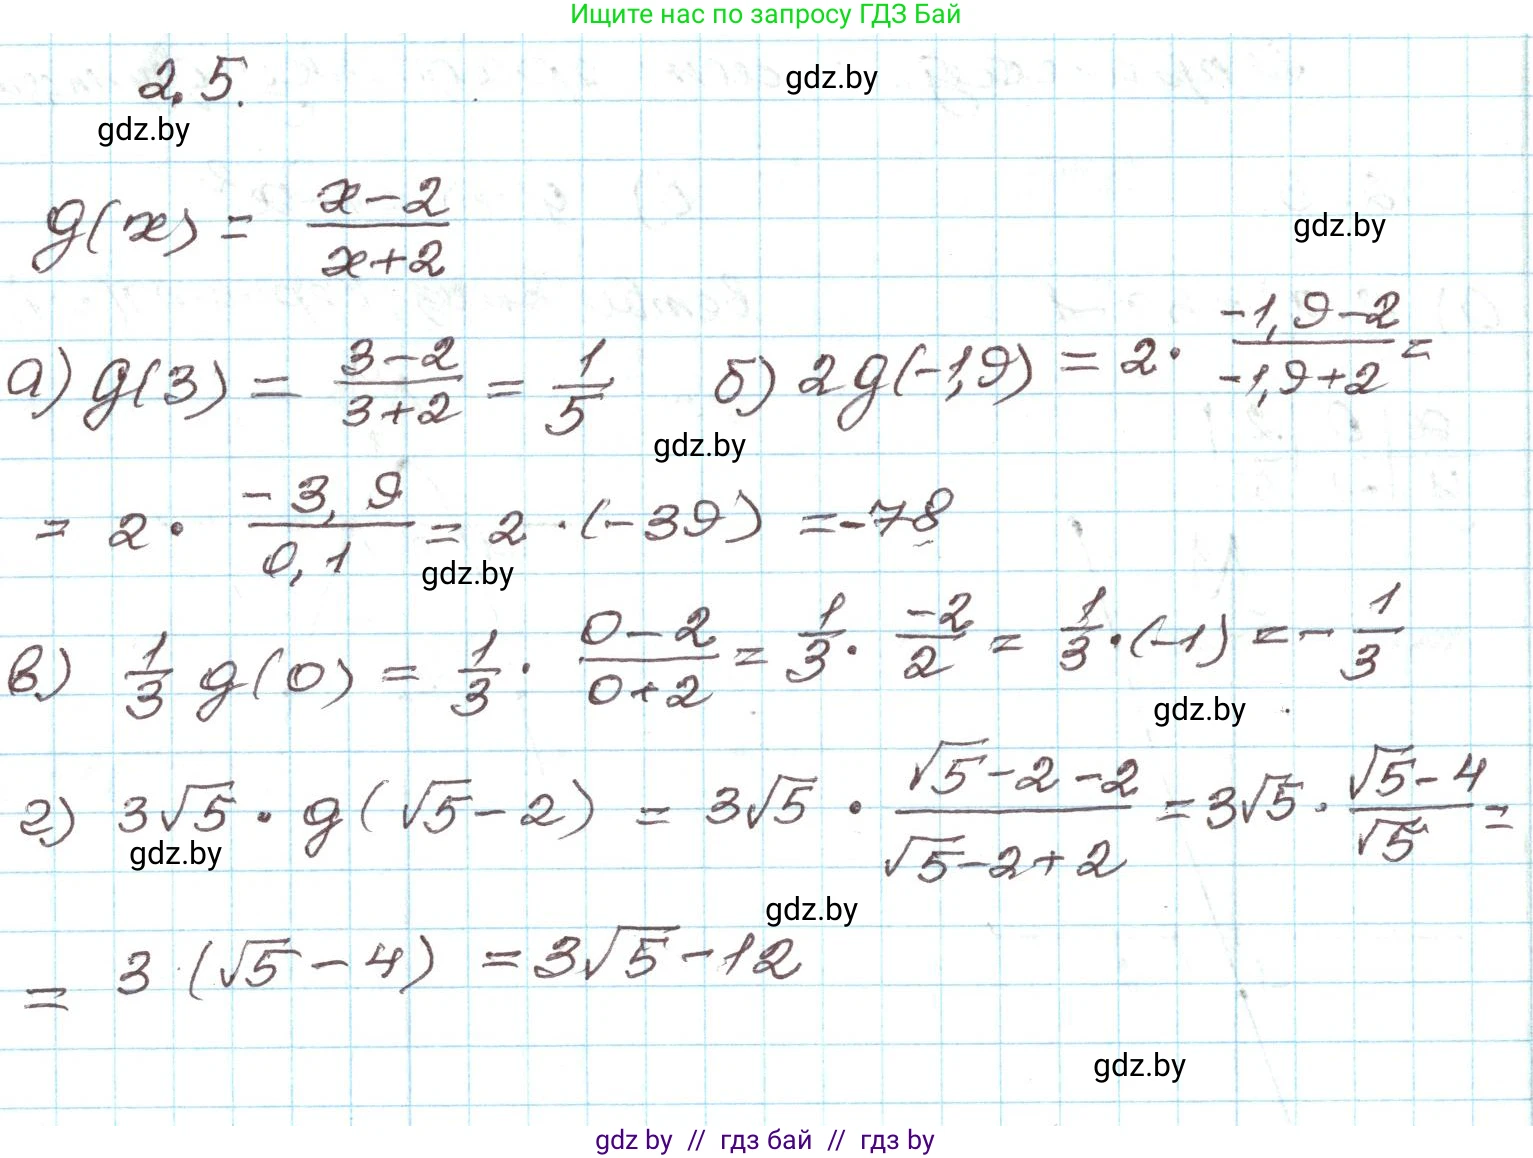 Ищите нас по запросу ГДЗ Бай
2.5.
gdz.by
gdz.by
g(x) = (x-2)/(x+2)
gdz.by
а) g(3) = (3-2)/(3+2) = 1/5 б) 2g(-1,9) = 2 · (-1,9-2)/(-1,9+2) =
gdz.by
= 2 · (-3,9)/(0,1) = 2 · (-39) = -78
gdz.by
в) 1/3 g(0) = 1/3 · (0-2)/(0+2) = 1/3 · (-2)/2 = 1/3 · (-1) = - 1/3
gdz.by
г) 3√5 · g(√5-2) = 3√5 · (√5-2-2)/(√5-2+2) = 3√5 · (√5-4)/√5 =
gdz.by
gdz.by
= 3 (√5-4) = 3√5-12
gdz.by
gdz by // гдз бай // гдз by